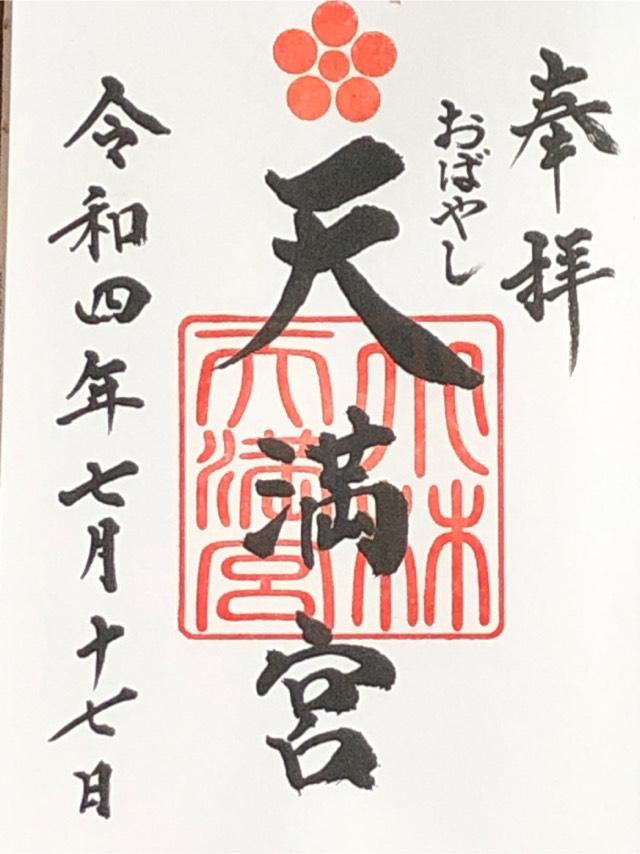 奉拝
おばやし
天満宮
小林
天満宮
令和四年七月十七日